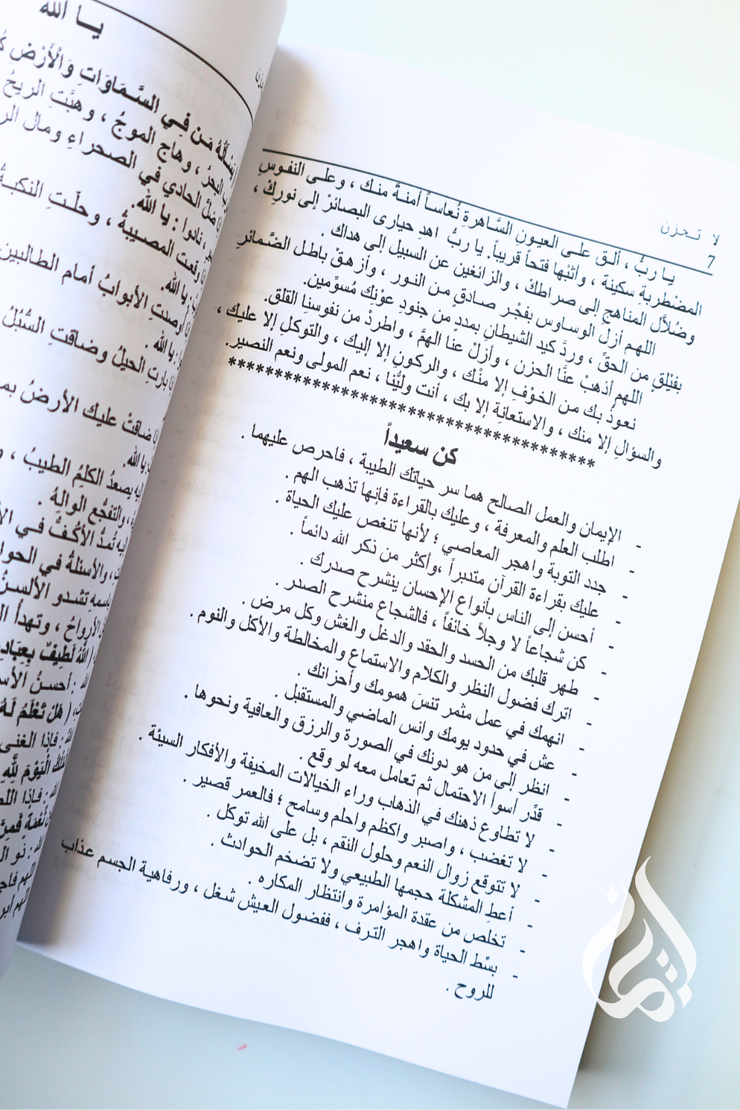 لا تحزن
7
يا ربُّ ، ألق على العيون السَّاهرة نُعاساً أمنةً منك ، وعلى النفوسِ
المضطربة سكينة ، وأثبْها فتحاً قريباً. يا ربُّ اهدِ حيارى البصائرْ إلى نورِكْ ،
وضُلاَّل المناهج إلى صراطكْ ، والزائغين عن السبيل إلى هداك .
اللهم أزل الوساوس بفجْر صادق من النور ، وأزهقْ باطل الضَّمائرِ
بفيْلق من الحقِّ ، وردَّ كيد الشيطانِ بمددٍ من جنودِ عوْنك مُسوِّمين.
اللهم أذهبْ عنَّا الحزن ، وأزلْ عنا الهمَّ ، واطردْ من نفوسنِا القلق.
نعوذُ بك من الخوْفِ إلا منْك ، والركون إلا إليك ، والتوكلِ إلا عليك ،
والسؤالِ إلا منك ، والاستعانِة إلا بك ، أنت وليُّنا ، نعم المولى ونعم النصير.
***************************************
كن سعيداً
- الإيمان والعمل الصالح هما سر حياتك الطيبة ، فاحرص عليهما .
- اطلب العلم والمعرفة ، وعليك بالقراءة فإنها تذهب الهم .
- جدد التوبة واهجر المعاصي ؛ لأنها تنغص عليك الحياة .
- عليك بقراءة القرآن متدبراً ،وأكثر من ذكر الله دائماً .
- أحسن إلى الناس بأنواع الإحسان ينشرح صدرك .
- كن شجاعاً لا وجلاً خائفاً ، فالشجاع منشرح الصدر .
- طهر قلبك من الحسد والحقد والدغل والغش وكل مرض .
- اترك فضول النظر والكلام والاستماع والمخالطة والأكل والنوم .
- انهمك في عمل مثمر تنسَ همومك وأحزانك .
- عش في حدود يومك وانس الماضي والمستقبل .
- انظر إلى من هو دونك في الصورة والرزق والعافية ونحوها .
- قدِّر أسوأ الاحتمال ثم تعامل معه لو وقع .
- لا تطاوع ذهنك في الذهاب وراء الخيالات المخيفة والأفكار السيئة .
- لا تغضب ، واصبر واكظم واحلم وسامح ؛ فالعمر قصير .
- لا تتوقع زوال النعم وحلول النقم ، بل على الله توكل .
- أعطِ المشكلة حجمها الطبيعي ولا تضخم الحوادث .
- تخلص من عقدة المؤامرة وانتظار المكاره .
- بسِّط الحياة واهجر الترف ، ففضول العيش شغل ، ورفاهية الجسم عذاب
للروح .
يا الله
مَن فِي السَّمَاوَاتِ وَالْأَرْضِ
البحرُ ، وهاج الموجُ ، وهبَّتِ الريحُ
الحادي في الصحراءِ ومال
نادوا : يا الله.
وقعت المصيبةُ ، وحلّتِ النكبةُ
يا الله.
الأبوابُ أمام الطالبين
يا الله.
بارتِ الحيلُ وضاقتِ السُّبُلُ
ضاقتْ عليك الأرضُ
يا الله.
يصعدُ الكلمُ الطيبُ ،
والتفجُّع الوالهُ .
تُمدُّ الأكُفُّ في
والأسئلةُ في
تشدو الألسنُ
الأرواحُ ، وتهدأ
اللهُ لَطِيفٌ بِعِبَادِ
أحسنُ
هَلْ تَعْلَمُ لَهُ
فإذا الغنى